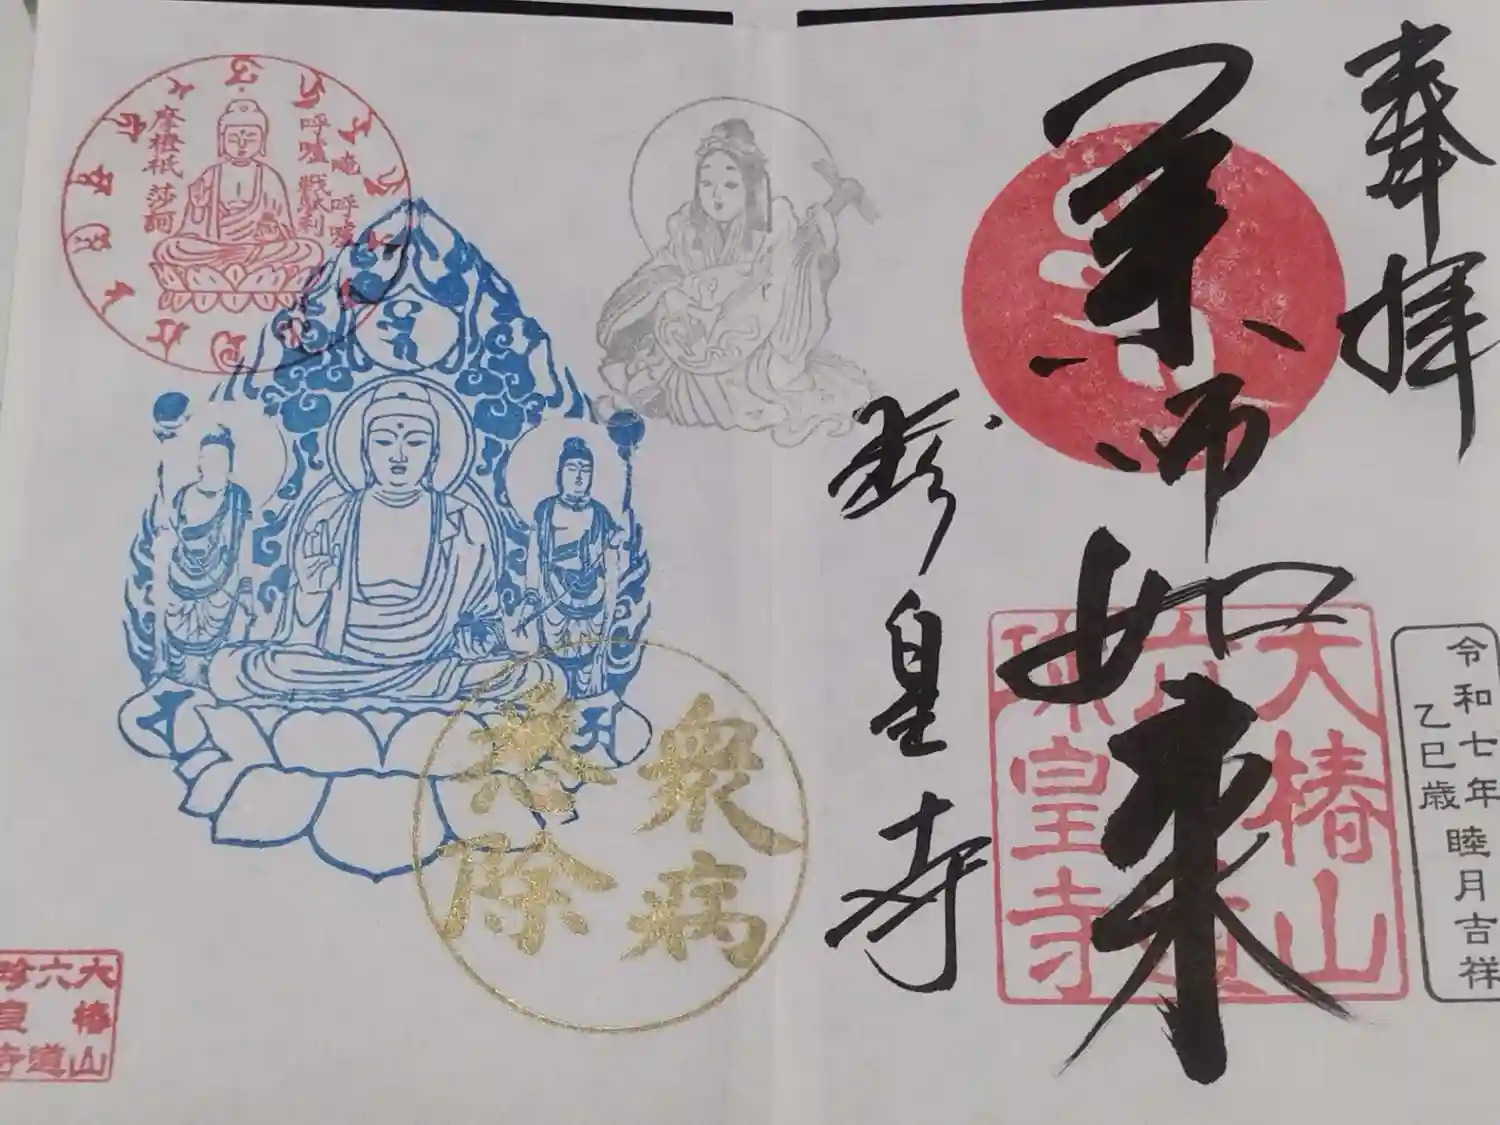 奉拝
薬師如来
珍皇寺
大椿山
六道
珍皇寺
令和七年 睦月吉祥
乙巳歳
呼嚧 戦駄利
唵 呼嚧
摩橙祇 莎訶
衆病
悉除
大椿山
六道
珍皇寺